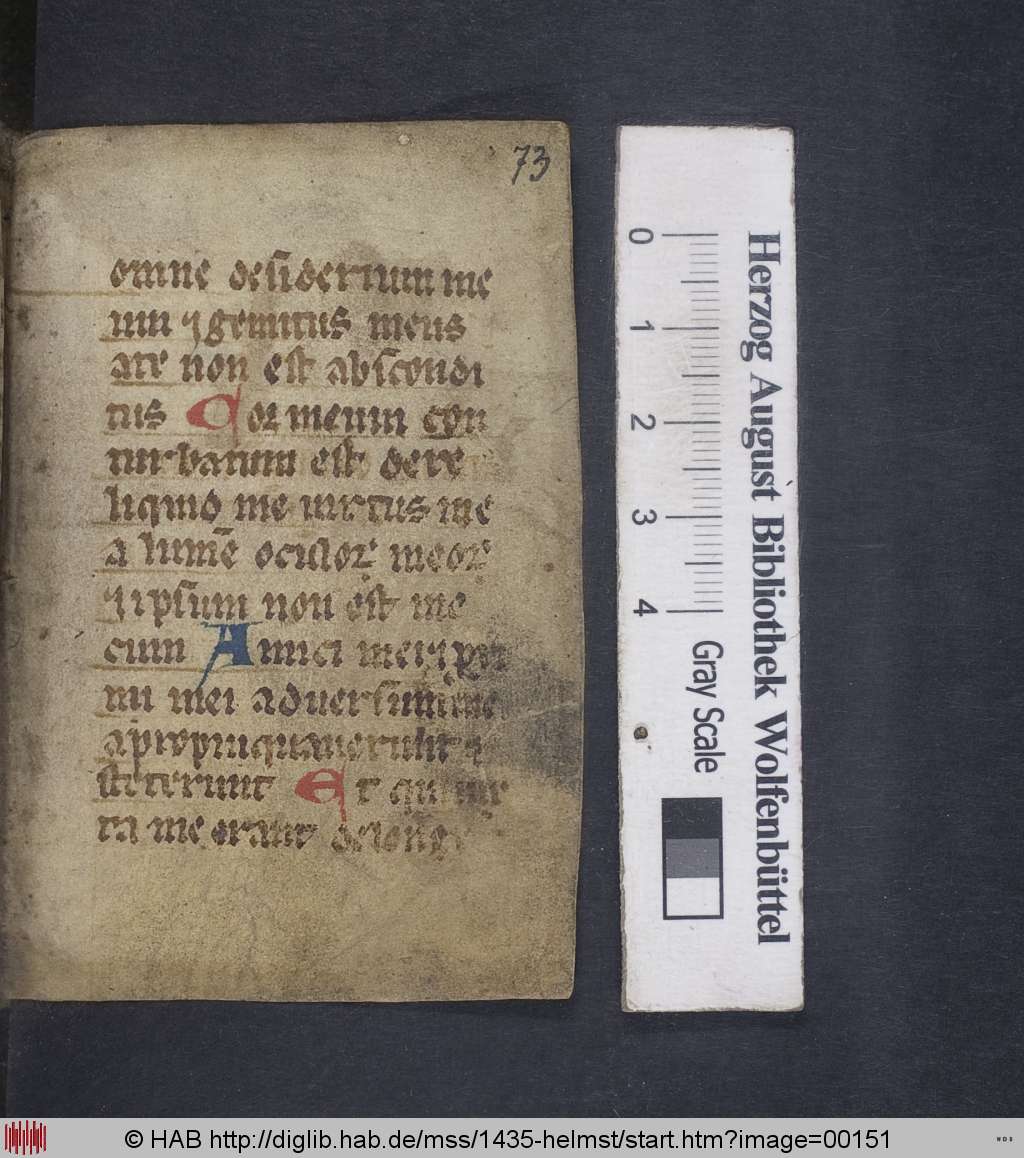 73
omne desiderium me
um ⁊ gemitus meus
a te non est abscondi
tus Cor meum con
turbatum est dere
liquid me uirtus me
a lumē oculoꝝ meoꝝ
⁊ ipsum non est me
cum Amici mei ⁊
mi mei aduersum me
apropinquauerunt ⁊
steterunt Et qui iux
ta me erant de longe
0
1
2
3
4
Gray Scale
Herzog August Bibliothek Wolfenbüttel
© HAB http://diglib.hab.de/mss/1435-helmst/start.htm?image=00151